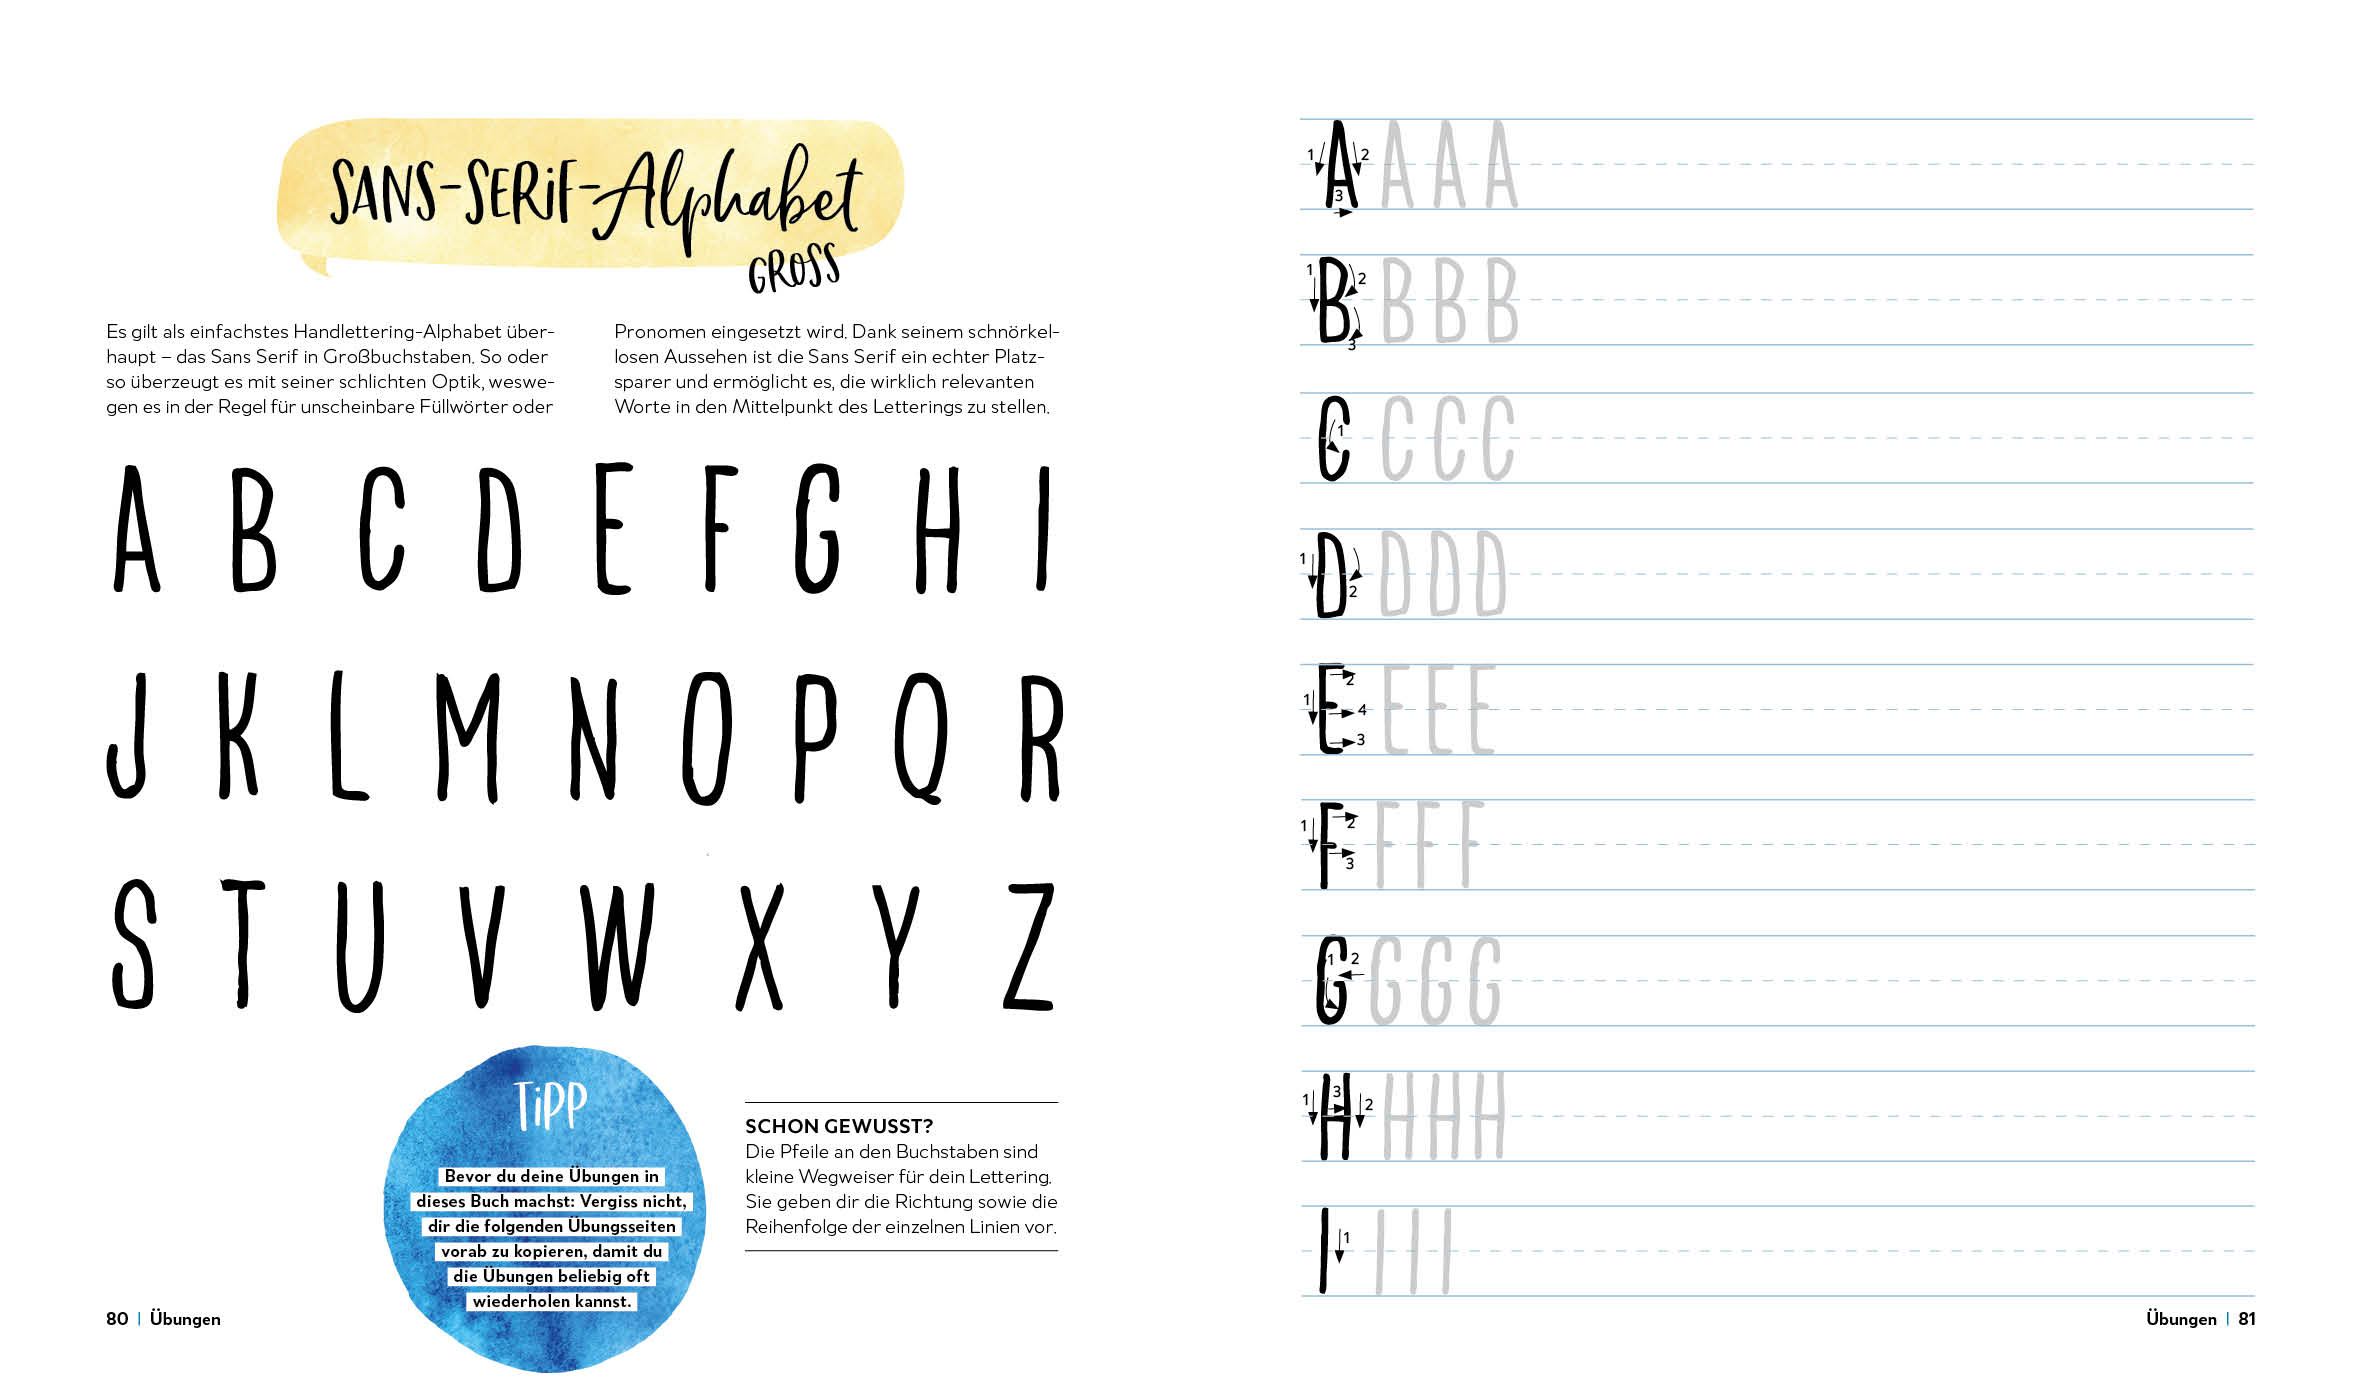 SANS-SERiF-Alphabet
GROSS
Es gilt als einfachstes Handlettering-Alphabet über-
haupt – das Sans Serif in Großbuchstaben. So oder
so überzeugt es mit seiner schlichten Optik, weswe-
gen es in der Regel für unscheinbare Füllwörter oder
Pronomen eingesetzt wird. Dank seinem schnörkel-
losen Aussehen ist die Sans Serif ein echter Platz-
sparer und ermöglicht es, die wirklich relevanten
Worte in den Mittelpunkt des Letterings zu stellen.
A B C D E F G H I
J K L M N O P Q R
S T U V W X Y Z
TiPP
Bevor du deine Übungen in
dieses Buch machst: Vergiss nicht,
dir die folgenden Übungsseiten
vorab zu kopieren, damit du
die Übungen beliebig oft
wiederholen kannst.
SCHON GEWUSST?
Die Pfeile an den Buchstaben sind
kleine Wegweiser für dein Lettering.
Sie geben dir die Richtung sowie die
Reihenfolge der einzelnen Linien vor.
80 | Übungen
1 A 2 3 A A A
1 B 2 3 B B B
C 1 C C C
1 D 2 D D D
1 E 2 4 3 E E E
1 F 2 3 F F F
G 1 2 G G G
1 H 3 2 H H H
I 1 I I I
Übungen | 81